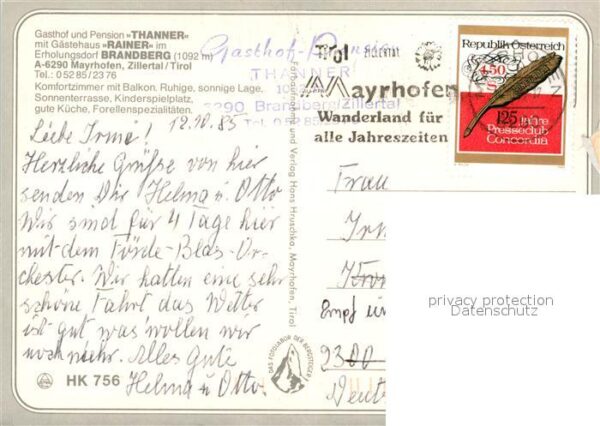 Gasthof und Pension »THANNER«
mit Gästehaus »RAINER« im
Erholungsdorf BRANDBERG (1092 m)
A-6290 Mayrhofen, Zillertal / Tirol
Tel.: 0 52 85 / 23 76
Komfortzimmer mit Balkon. Ruhige, sonnige Lage,
Sonnenterrasse, Kinderspielplatz,
gute Küche, Forellenspezialitäten.
Gasthof-Pension
THANNER
6290 Brandberg/Zillertal
Tirol
Mayrhofen
Wanderland für
alle Jahreszeiten
Republik Österreich
4.50
S
125 Jahre
Presseclub
Concordia
12.10.85
Liebe Irmi!
Herzliche Grüße von hier
senden Dir Helma u. Otto
Wir sind für 4 Tage hier
mit dem Förde-Blas-Or-
chester. Wir hatten eine sehr
schöne Fahrt das Wetter
ist gut was wollen wir
noch mehr. Alles Gute
Helma u. Otto
HK 756
und Verlag Hans Hruschka, Mayrhofen, Tirol
DAS FOTOLABOR DER BERGSTEIGER
Frau
2300
privacy protection
Datenschutz